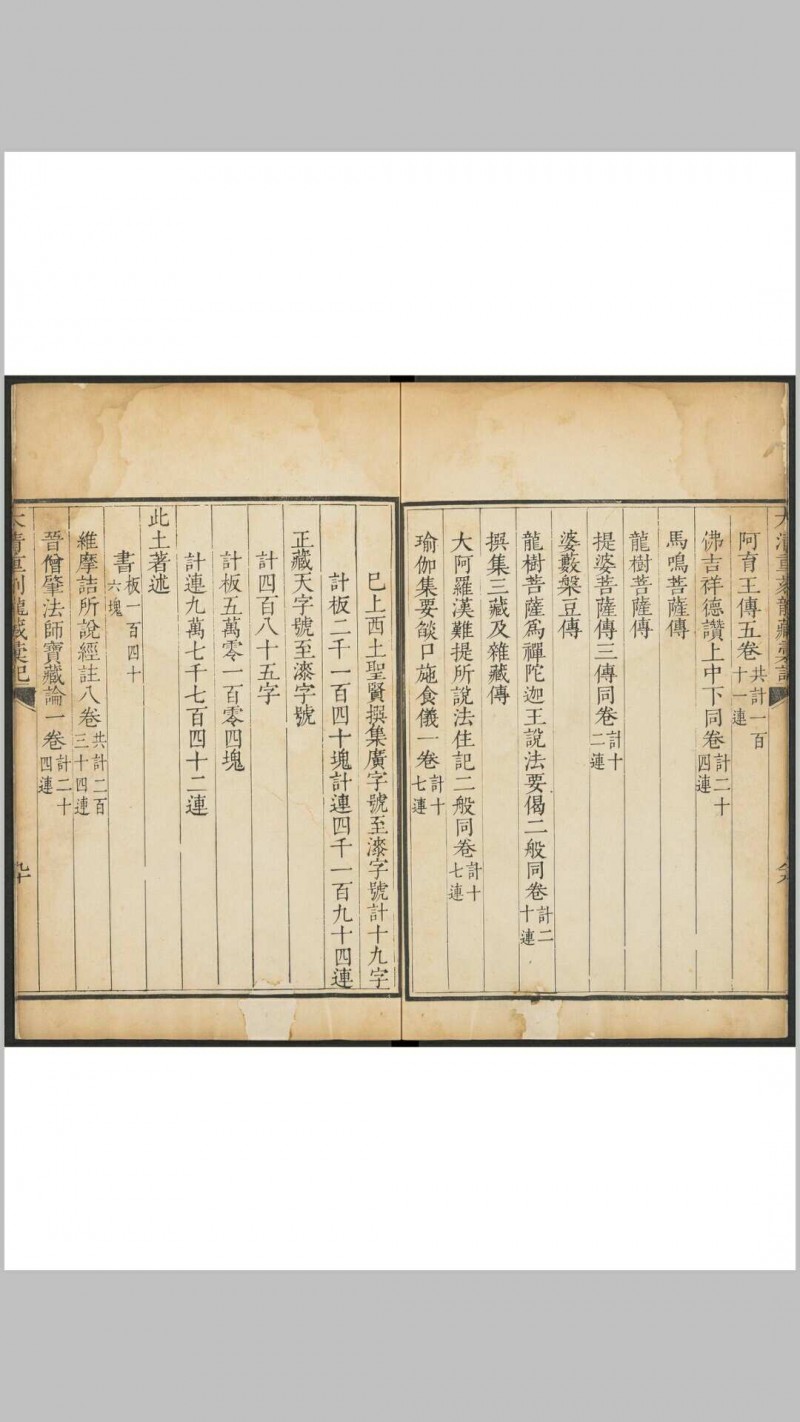 阿育王傳五卷共計一百十一連
佛吉祥德讚上中下同卷計二十四連
馬鳴菩薩傳
龍樹菩薩傳
提婆菩薩傳三傳同卷計十二連
婆藪槃豆傳
龍樹菩薩爲禪陀迦王說法要偈二般同卷計二十連
撰集三藏及雜藏傳
大阿羅漢難提所說法住記二般同卷計十七連
瑜伽集要燄口施食儀一卷計十七連
已上西土聖賢撰集廣字號至漆字號計十九字
計板二千一百四十塊計連四千一百九十四連
正藏天字號至漆字號
計四百八十五字
計板五萬零一百零四塊
計連九萬七千七百四十二連
此土著述
書板一百四十六塊
維摩詰所說經註八卷共計二百三十四連
晉僧肇法師寶藏論一卷計二十四連